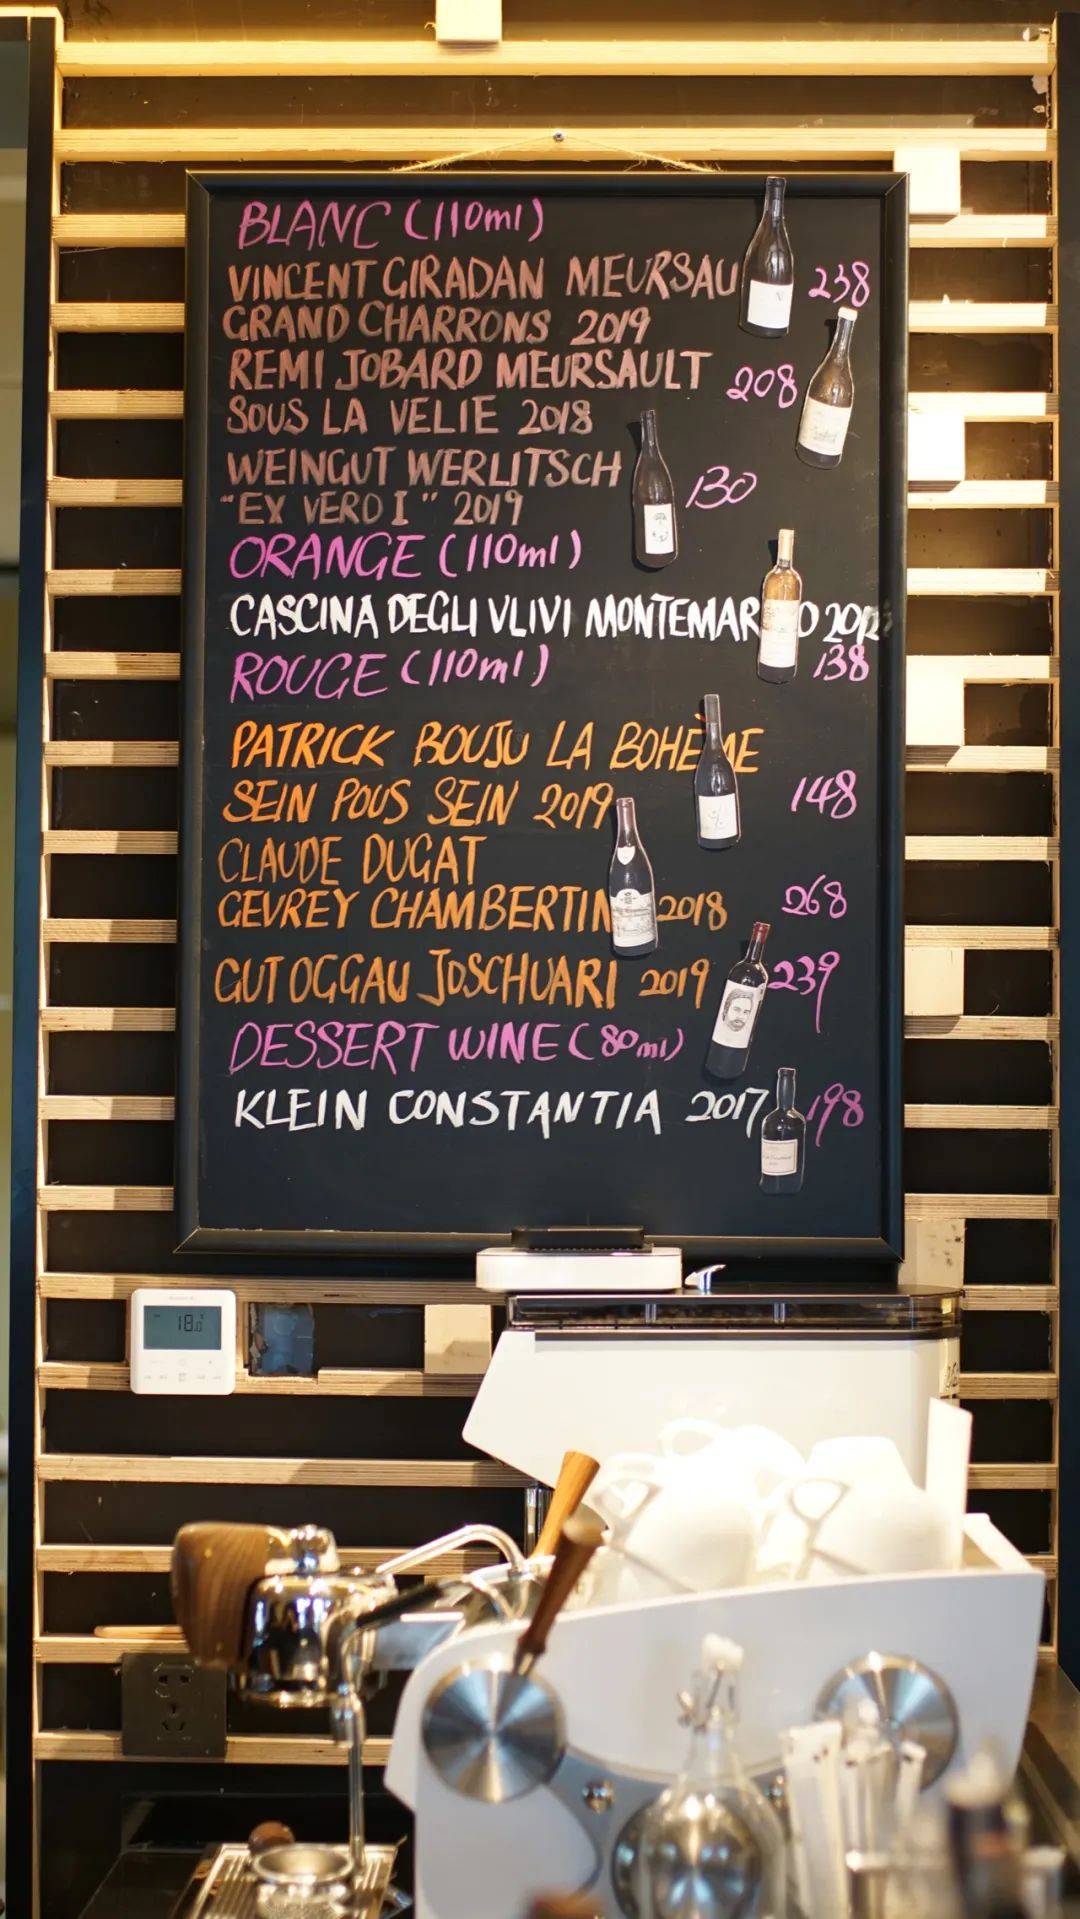 BLANC (110ml)
VINCENT GIRADAN MEURSAU 238
GRAND CHARRONS 2019
REMI JOBARD MEURSAULT 208
SOUS LA VELIE 2018
WEINGUT WERLITSCH 130
"EX VERO I" 2019
ORANGE (110ml)
CASCINA DEGLI VLIVI
138
ROUGE (110ml)
PATRICK BOUJU LA BOHÈME
SEIN POUS SEIN 2019 148
CLAUDE DUGAT
GEVREY CHAMBERTIN 2018 268
GUT OGGAU JOSCHUARI 2019 239
DESSERT WINE (80ml)
KLEIN CONSTANTIA 2017 198
18.0